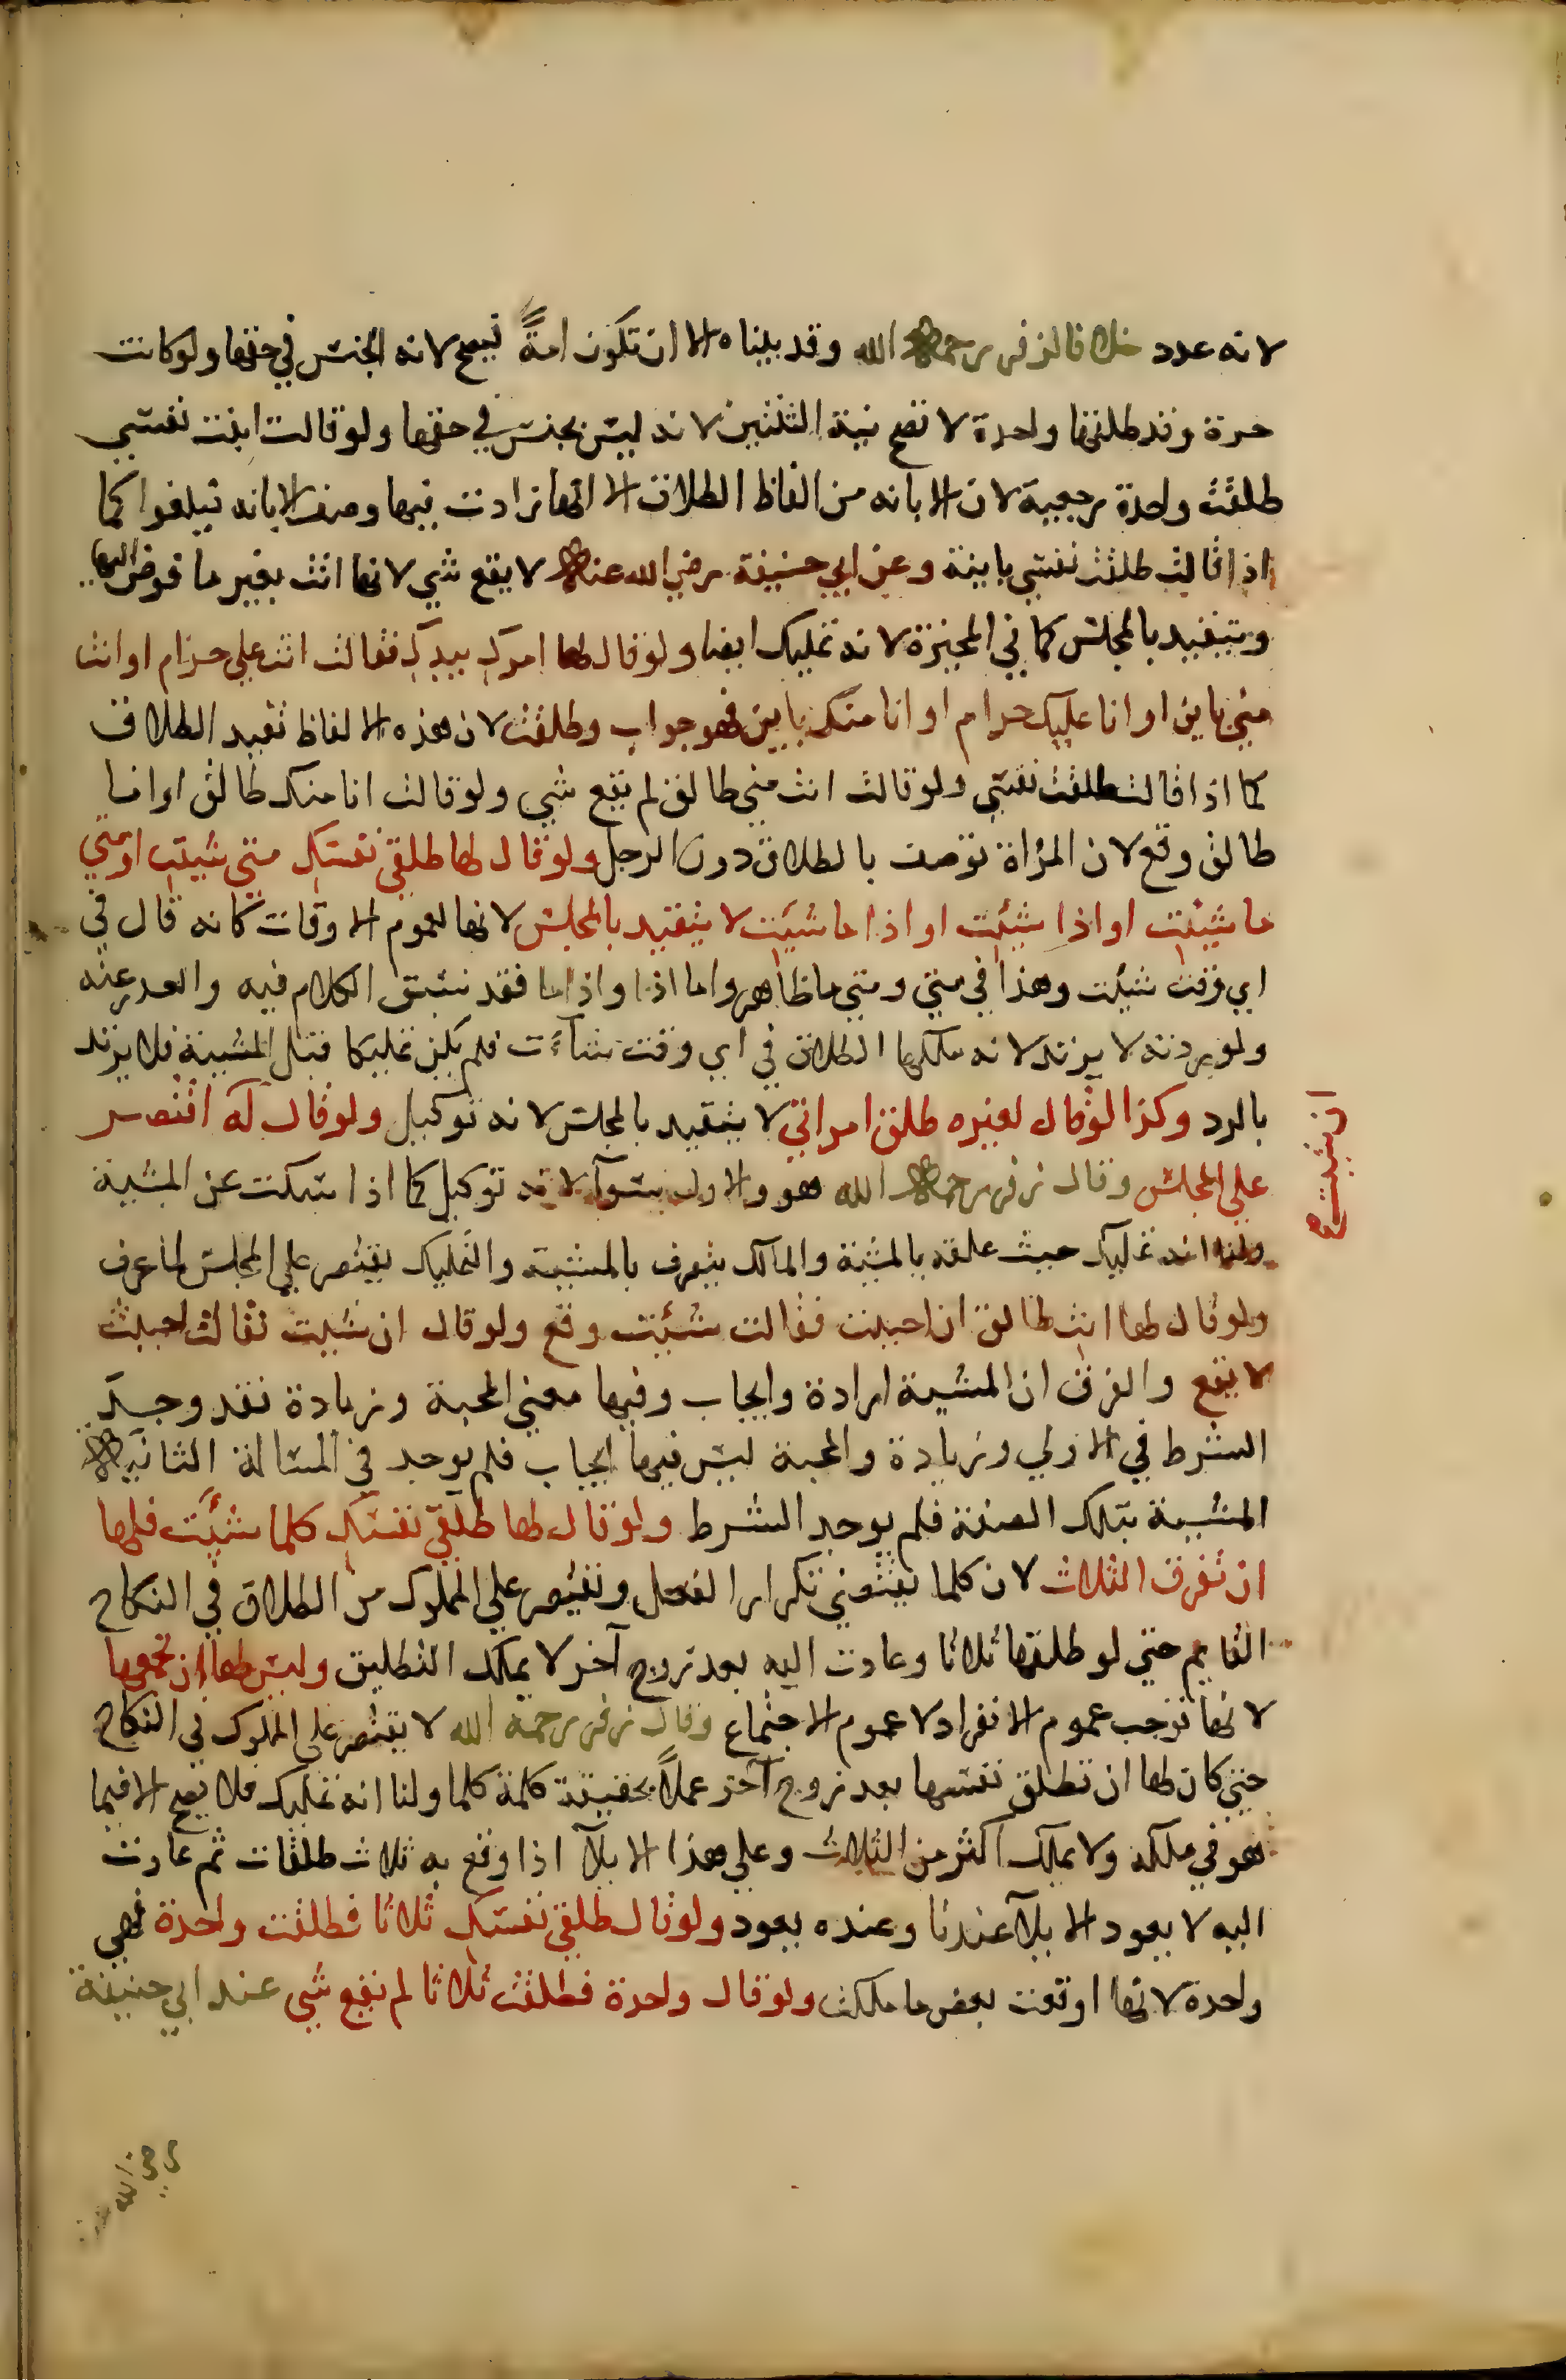 لانه عدد خلافا لزفر رحمه الله وقد بيناه الا ان تكون امةً فيصح لانه الجنس في حقها ولو كانت
حرة وقد طلقها واحدة لا تصح نية الثنتين لانه ليس بجنس في حقها ولو قالت ابنت نفسي
طلقت واحدة رجعية لان الابانه من الفاظ الطلاق الا انها زادت فيها وصف الابانه فيلغوا كما
اذا قالت طلقت نفسي باينة وعن ابي حنيفة رضي الله عنه لا يقع شي لانها اتت بغير ما فوض اليها
ويتقيد بالمجلس كما في المخيرة لانه تمليك ايضا ولو قال لها امرك بيدك فقالت انت علي حرام او انت
مني باين او انا عليك حرام او انا منك باين فهو جواب وطلقت لان هذه الالفاظ تفيد الطلاق
كما اذا قالت طلقت نفسي ولو قالت انت مني طالق لم يقع شي ولو قالت انا منك طالق او انا
طالق وقع لان المراة توصف بالطلاق دون الرجل ولو قال لها طلقي نفسك متي شيت او متي
ما شيئت او اذا شيئت او اذا ما شيئت لا يتقيد بالمجلس لانها لعموم الاوقات كانه قال في
اي وقت شيئت وهذا في متي ومتي ما ظاهر واما اذا واذاما فقد سبق الكلام فيه والعدر عنه
ولو ردته لا يرتد لانه ملكها الطلاق في اي وقت شآءت فلم يكن تمليكا قبل المشيية فلا يرتد
بالرد وكذا لو قال لغيره طلق امراتي لا يتقيد بالمجلس لانه توكيل ولو قال له اقتصر
ان شيت صح
علي المجلس وقال زفر رحمه الله هو والاول سوآ لانه توكيل كما اذا سكت عن المشية
ولنا انه تمليك حيث علقه بالمشية والمالك يتصرف بالمشيية والتمليك يقتصر علي المجلس لما عرف
ولو قال لها انت طالق ان احببت فقالت شيئت وقع ولو قال ان شيت فقالت احببت
لا يقع والفرق ان المشيية ارادة وايجاب وفيها معني المحبة وزيادة فقد وجد
الشرط في الاولي وزيادة والمحبة ليس فيها ايجاب فلم يوجد في المسالة الثانيه
المشيية بتلك الصفة فلم يوجد الشرط ولو قال لها طلقي نفسك كلما شيئت فلها
ان تفرق الثلاث لان كلما يقتضي تكرار الفعل ويقتصر علي المملوك من الطلاق في النكاح
القايم حتي لو طلقها ثلاثا وعادت اليه بعد تزوج آخر لا يملك التطليق وليس لها ان تجمعها
لانها توجب عموم الانفراد لا عموم الاجتماع وقال زفر رحمه الله لا يقتصر علي المملوك في النكاح
حتي كان لها ان تطلق نفسها بعد زوج آخر عملاً بحقيقة كلمة كلما ولنا انه تمليك فلا يصح الا فيما
هو في ملكه ولا يملك اكثر من الثلاث وعلي هذا الايلآ اذا وقع به ثلاث طلقات ثم عادت
اليه لا يعود الايلآ عندنا وعنده يعود ولو قال طلقي نفسك ثلاثا فطلقت واحدة فهي
واحدة لانها اوقعت بعض ما ملكت ولو قال واحدة فطلقت ثلاثا لم يقع شي عند ابي حنيفة
رضي الله عنه